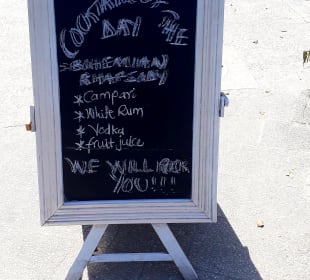 COCKTAIL OF THE
DAY
BOHEMIAN
RHAPSODY
*Campari
*White Rum
*Vodka
*fruit juice
WE WILL ROCK
YOU!!!